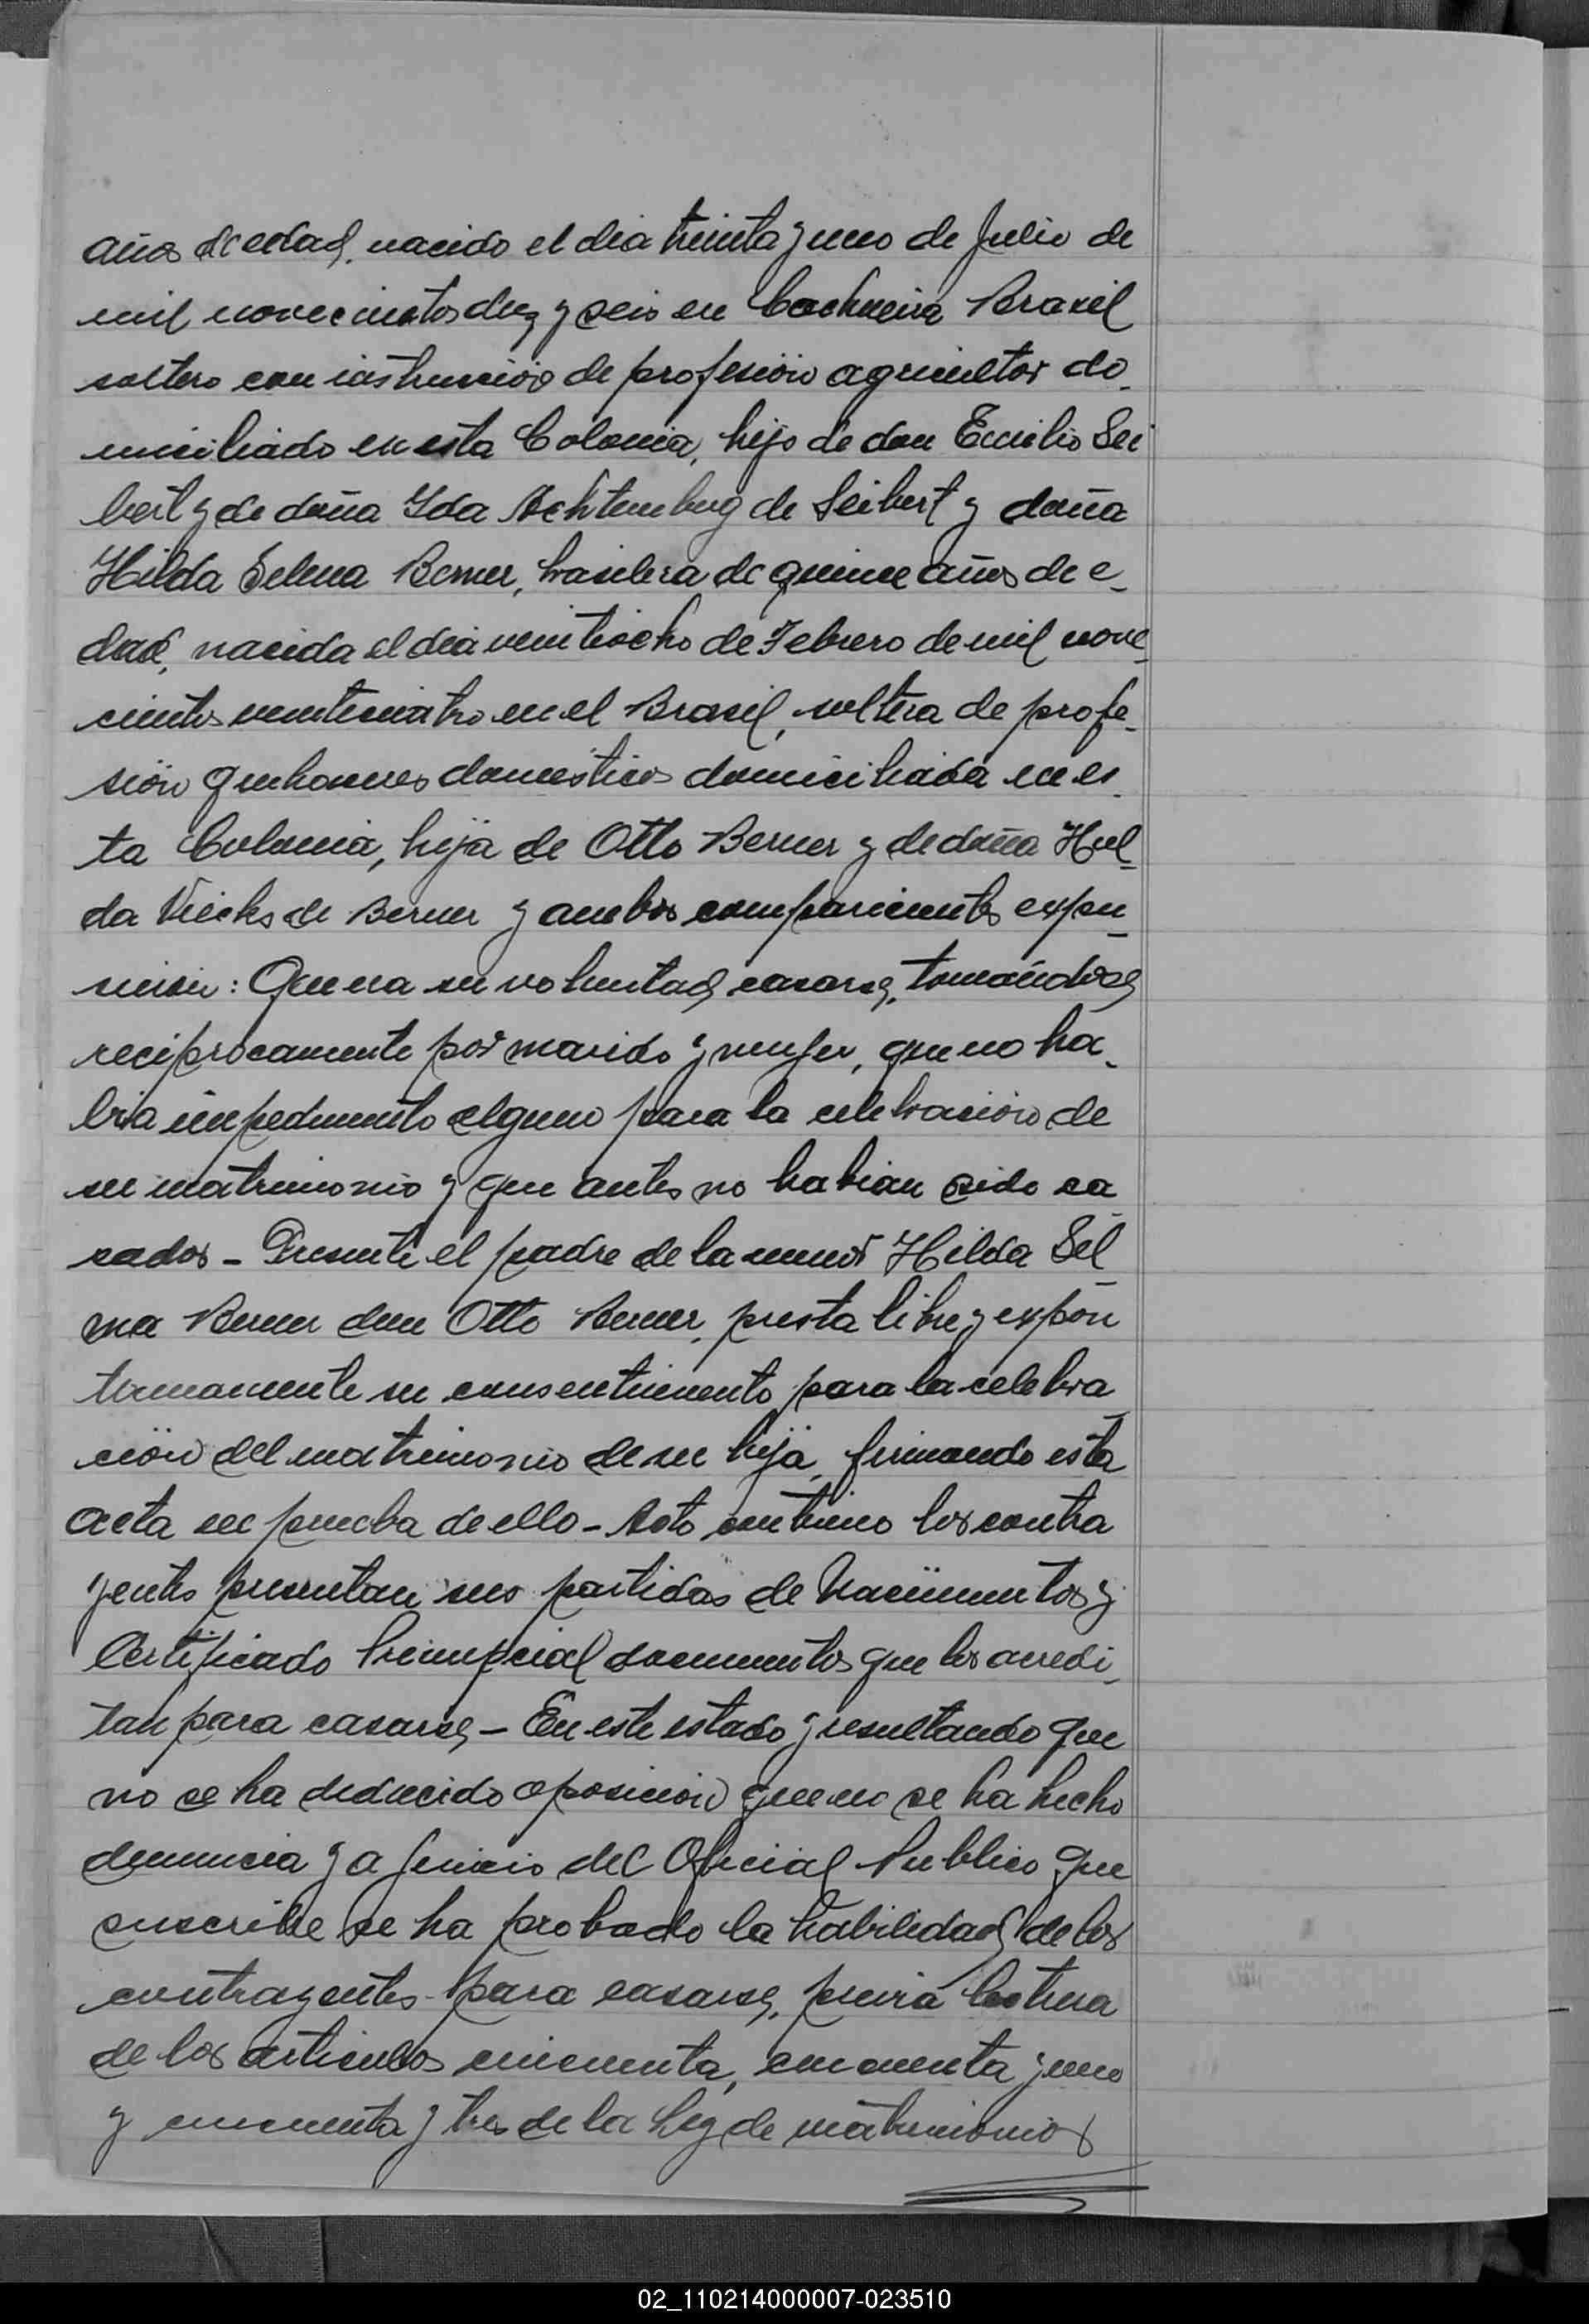 años de edad, nacido el dia treinta y uno de Julio de
mil novecientos diez y seis en Cachueira Brasil
soltero con instrucción de profesión agricultor do-
miciliado en esta Colonia, hijo de don Emilio Sei
bert y de doña Ida Achtemberg de Seibert y doña
Hilda Selma Berner, brasilera de quince años de e-
dad, nacida el dia veintiocho de Febrero de mil nove-
cientos veinticuatro en el Brasil, soltera de profe-
sión quehaceres domesticos domiciliada en es-
ta Colonia, hija de Otto Berner y de doña Hul-
da de Berner y ambos comparecientes expu-
sieron: Que era su voluntad casarse, tomándose
reciprocamente por marido y mujer, que no ha-
bia impedimento alguno para la celebración de
su matrimonio y que antes no habian sido ca-
sados - Presente el padre de la menor Hilda Sel-
ma Berner don Otto Berner, presta libre y expon
taneamente su consentimiento para la celebra-
ción del matrimonio de su hija, firmando esta
acta en prueba de ello - Acto continuo los contra
yentes presentan sus partidas de Nacimientos y
Certificado Prenupcial documentos que los acredi-
tan para casarse - En este estado y resultando que
no se ha deducido oposición que no se ha hecho
denuncia y a juicio del Oficial Publico que
suscribe se ha probado la habilidad de los
contrayentes para casarse, previa lectura
de los articulos cincuenta, cincuenta y uno
y cincuenta y tres de la Ley de matrimonios
02_110214000007-023510